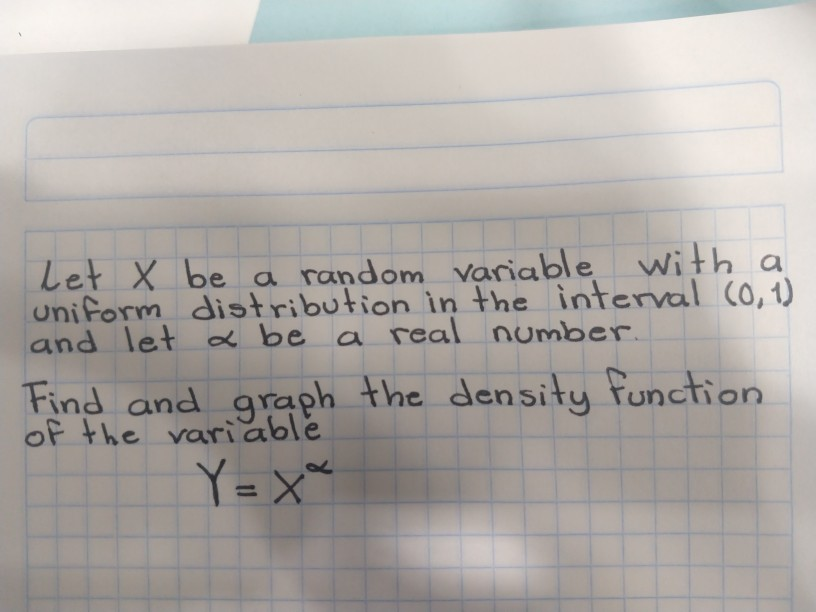 Let X be a random variable with a
uniform distribution in the interval (0,1)
and let α be a real number.
Find and graph the density function
of the variable
Y = X^α